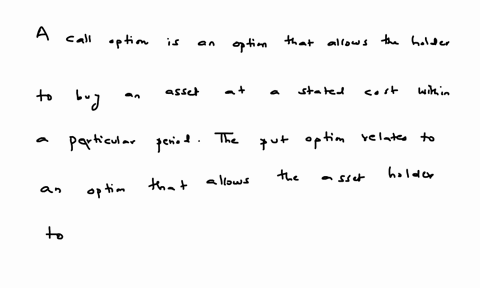 A call option is an option that allows the holder
to buy an asset at a stated cost within
a particular period. The put option relates to
an option that allows the asset holder
to